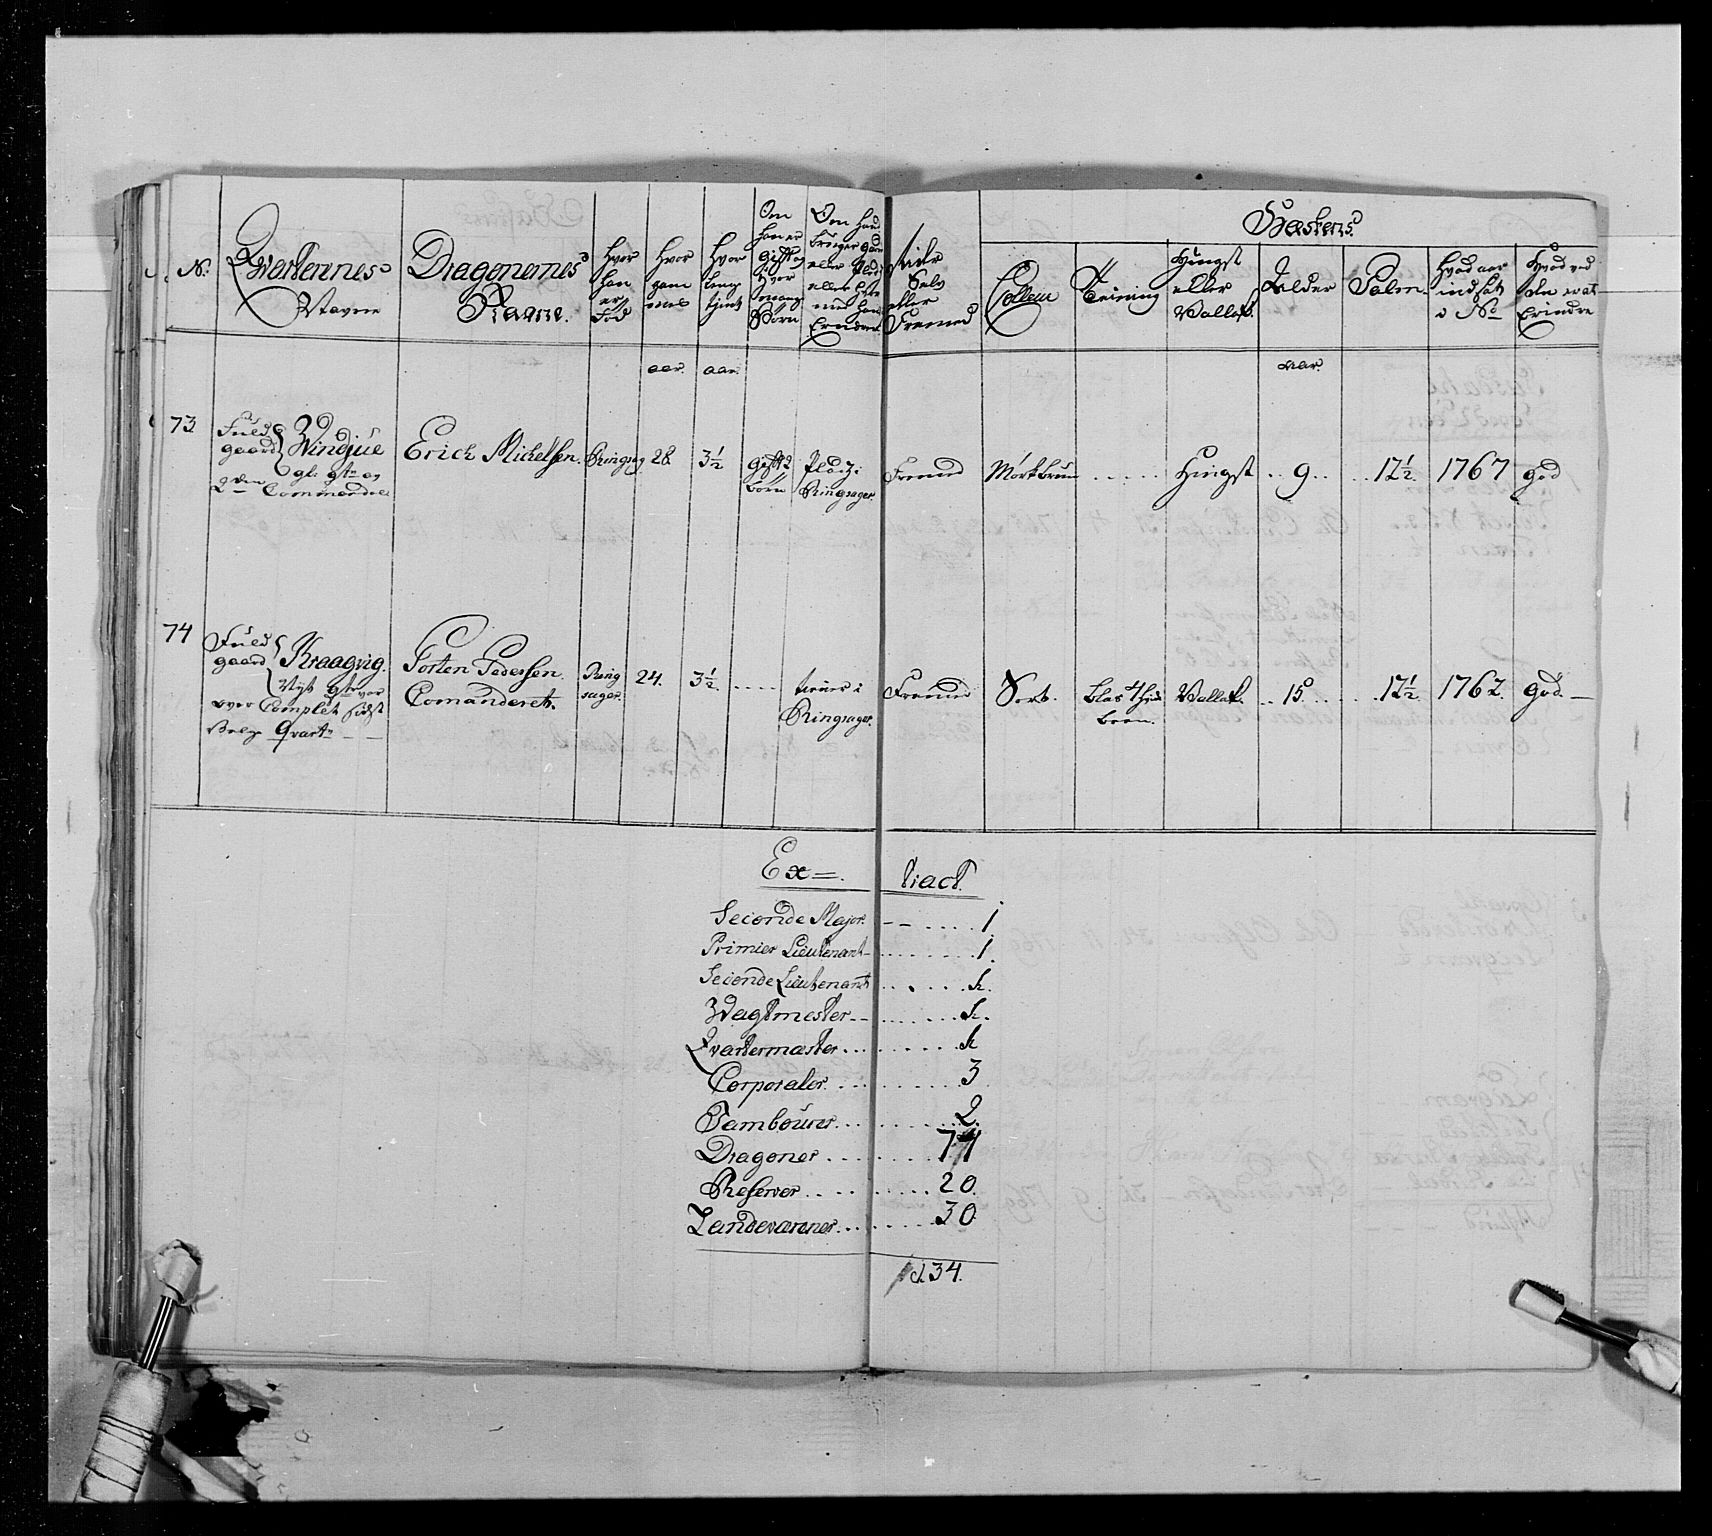 N.
Qvarterernes
Navne
Dragonernes
Naune.
Hvor
han
er
Fød
Hvor
gam
mel
Hvor
leng
tjent
Om
han er
Gift og
Hvor
mang
Børn
Om han
bruger gaar
eller Plads
eller
Erindre
Selv
eller
Fremed
Hæstens
Collour
Teining
Hingst
eller
Vallak.
Alder
Palm.
Hvad aar
indsat
i No
Hvad ved
den er at
Erindre
aar. aar. aar.
73
Fuld
gaard
Windjue
gl. qtr og
2den Commandeer
Erich Michelsen.
Ringsag
28.
3½
gift 2
børn
Plads i
Ringsager.
Fremed
Mørkbrun
Hingst
9
12½.
1767
god
74
Fuld
gaard
Kraagvig.
Nyt qtr var
over Complet sidst
Qvartr
Torten Pedersen
Comanderet.
Ring
sager.
24.
3½
tiener i
Ringsager.
Fremed
Sort.
blas 4 hvid
been.
Vallak.
15
12½
1762.
god
Ex=tract.
Seconde Major. 1
Primier Lieutenant 1.
Seconde Lieutenant 1.
Wagtmester 1.
Qvartermæster 1
Corporaler 3
Tambourer 2.
Dragoner 74
Reserver 20.
Landeværener 30.
134.